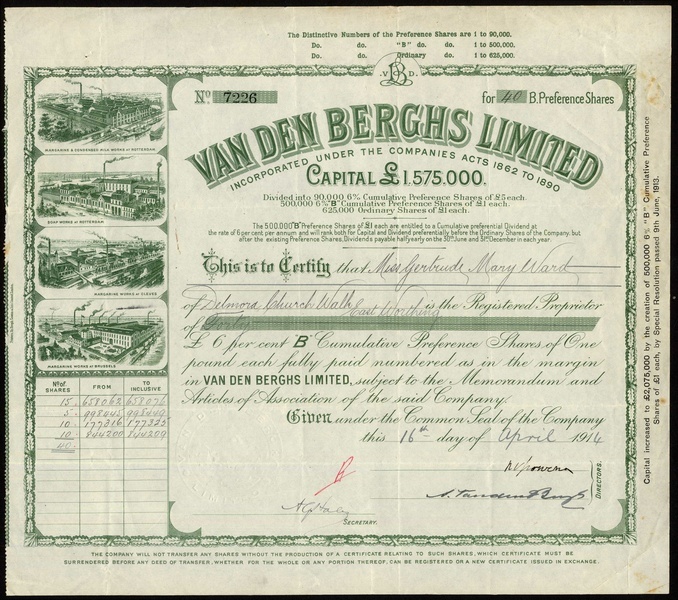 The Distinctive Numbers of the Preference Shares are 1 to 90,000.
Do. do. "B" do. do. 1 to 500,000.
Do. do. Ordinary do. 1 to 625,000.
V B D.
No. 7226
for 40 B. Preference Shares
VAN DEN BERGHS LIMITED
INCORPORATED UNDER THE COMPANIES ACTS 1862 TO 1890
CAPITAL £1,575,000.
Divided into 90,000 6% Cumulative Preference Shares of £5 each.
500,000 6% "B" Cumulative Preference Shares of £1 each.
625,000 Ordinary Shares of £1 each.
The 500,000 "B" Preference Shares of £1 each are entitled to a Cumulative preferential Dividend at
the rate of 6 per cent per annum and will rank both for Capital and Dividend preferentially before the Ordinary Shares of the Company, but
after the existing Preference Shares, Dividends payable half yearly on the 30th June and 31st December in each year.
This is to Certify that Miss Gertrude Mary Ward
of Delmora Church Walk East Worthing is the Registered Proprietor
of Forty
£6 per cent "B" Cumulative Preference Shares of One
pound each fully paid numbered as in the margin
in VAN DEN BERGHS LIMITED, subject to the Memorandum and
Articles of Association of the said Company.
Given under the Common Seal of the Company
this 16th day of April 1914
DIRECTORS.
SECRETARY.
MARGARINE & CONDENSED MILK WORKS AT ROTTERDAM
SOAP WORKS AT ROTTERDAM
MARGARINE WORKS AT CLEVES
MARGARINE WORKS AT BRUSSELS
No. of SHARES FROM TO INCLUSIVE
15 658062 658076
5 998445 998449
10 177316 177325
10 844200 844209
40
Capital increased to £2,075,000 by the creation of 500,000 6% "B" Cumulative Preference
Shares of £1 each, by Special Resolution passed 9th June, 1913.
THE COMPANY WILL NOT TRANSFER ANY SHARES WITHOUT THE PRODUCTION OF A CERTIFICATE RELATING TO SUCH SHARES, WHICH CERTIFICATE MUST BE
SURRENDERED BEFORE ANY DEED OF TRANSFER, WHETHER FOR THE WHOLE OR ANY PORTION THEREOF, CAN BE REGISTERED OR A NEW CERTIFICATE ISSUED IN EXCHANGE.